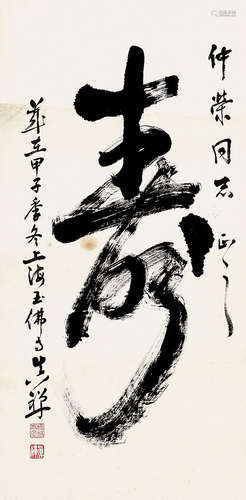 仲荣同志正之
寿
岁在甲子季冬上海玉佛寺真禅